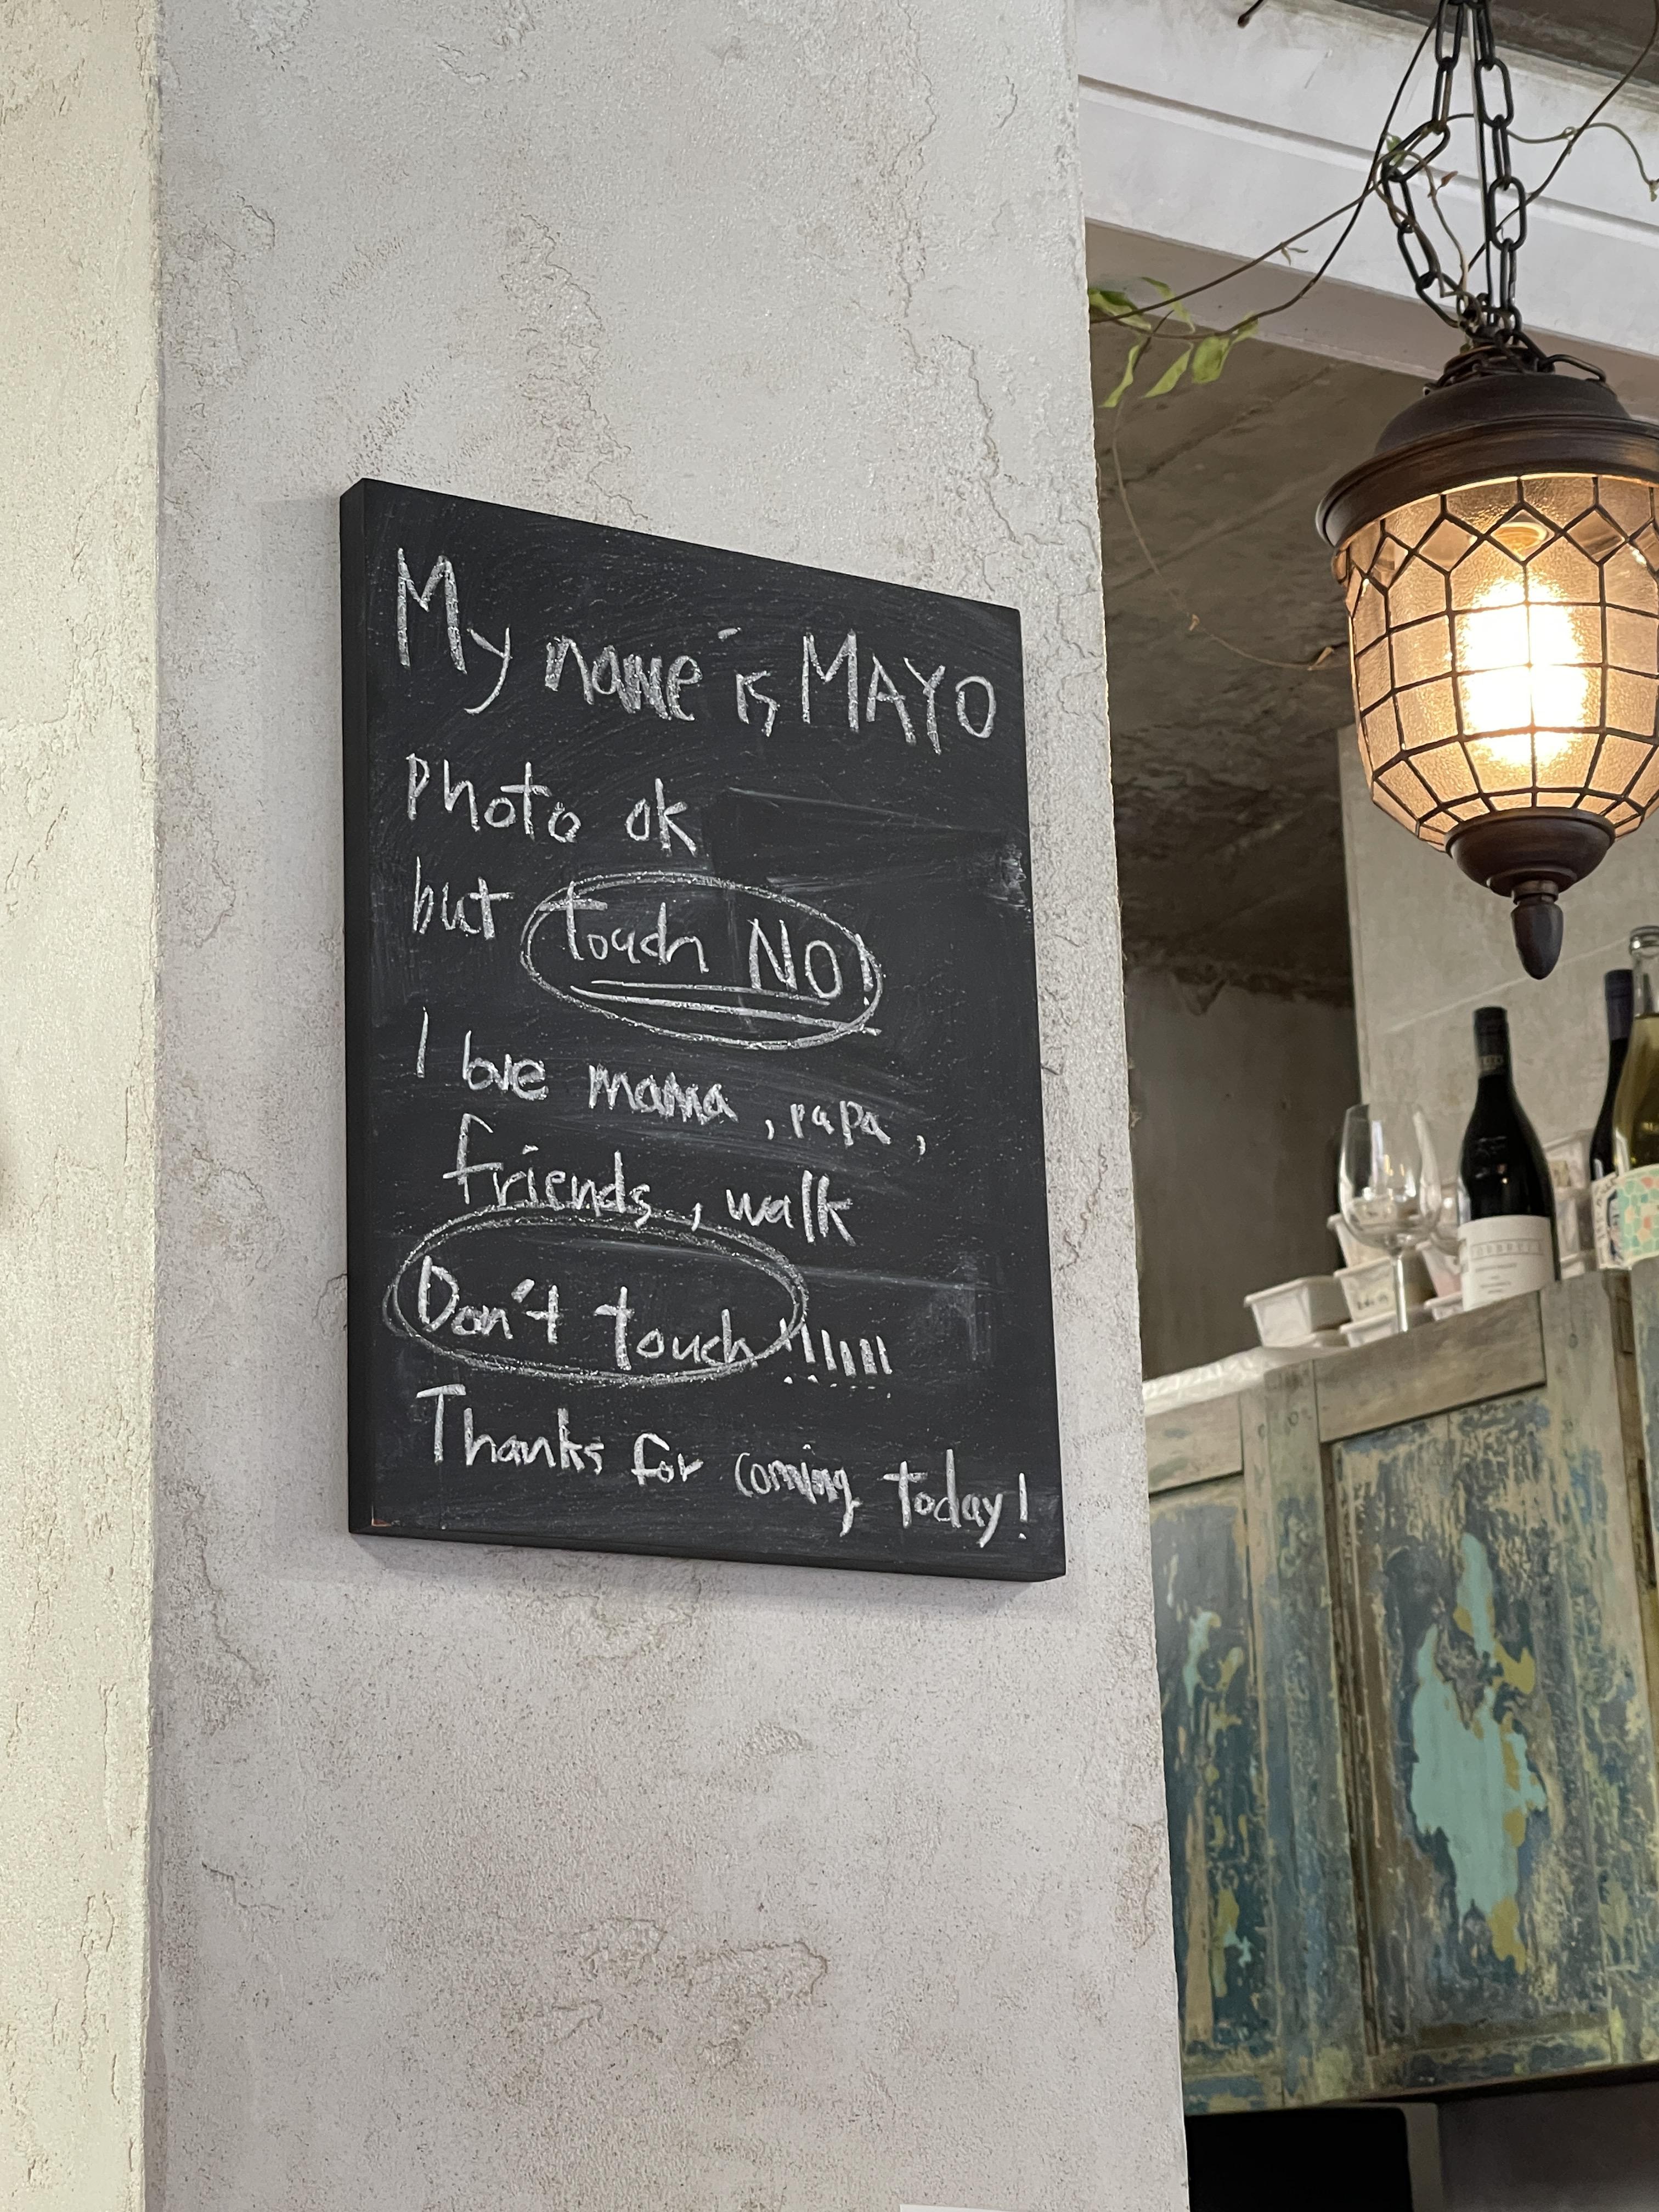 My name is MAYO
Photo ok
but touch NO!
I love mama, papa,
friends, walk
Don't touch!!!!!!
Thanks for coming today!